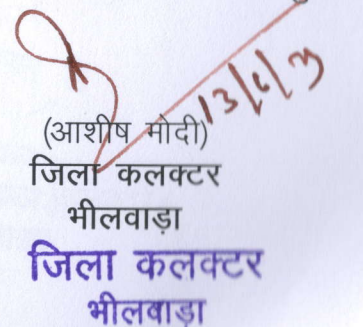 (आशीष मोदी)
जिला कलक्टर
भीलवाड़ा
जिला कलक्टर
भीलवाड़ा